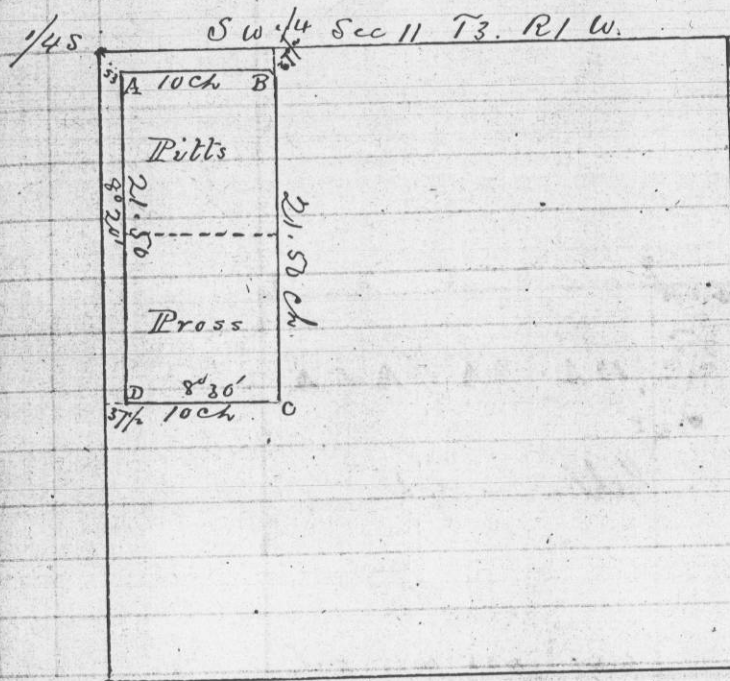 1/4 S
S W 1/4 Sec 11 T3. R1 W.
53
37 1/2
A 10 Ch B
Pitts
21.50
21.50 Ch
Pross
D 8° 30' C
37 1/2 10 Ch